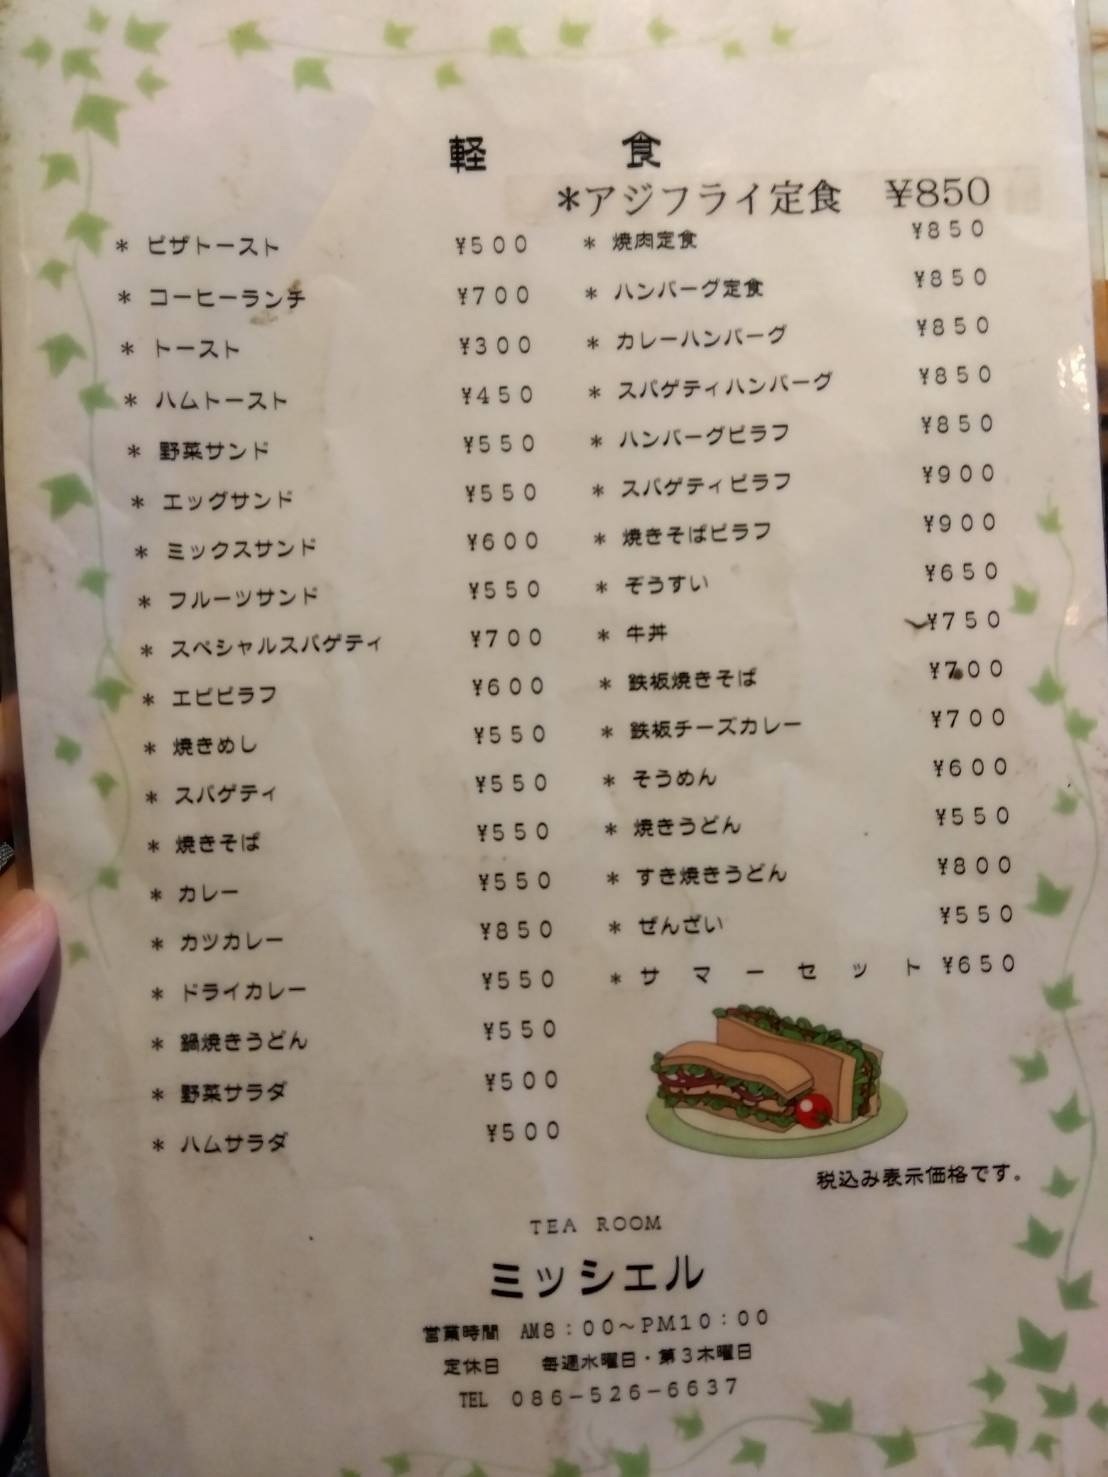 軽 食
*アジフライ定食 ¥850
* ピザトースト ¥500
* コーヒーランチ ¥700
* トースト ¥300
* ハムトースト ¥450
* 野菜サンド ¥550
* エッグサンド ¥550
* ミックスサンド ¥600
* フルーツサンド ¥550
* スペシャルスパゲティ ¥700
* エビピラフ ¥600
* 焼きめし ¥550
* スパゲティ ¥550
* 焼きそば ¥550
* カレー ¥550
* カツカレー ¥850
* ドライカレー ¥550
* 鍋焼きうどん ¥550
* 野菜サラダ ¥500
* ハムサラダ ¥500
* 焼肉定食 ¥850
* ハンバーグ定食 ¥850
* カレーハンバーグ ¥850
* スパゲティハンバーグ ¥850
* ハンバーグピラフ ¥850
* スパゲティピラフ ¥900
* 焼きそばピラフ ¥900
* ぞうすい ¥650
* 牛丼 ¥750
* 鉄板焼きそば ¥700
* 鉄板チーズカレー ¥700
* そうめん ¥600
* 焼きうどん ¥550
* すき焼きうどん ¥800
* ぜんざい ¥550
* サマーセット ¥650
税込み表示価格です。
TEA ROOM
ミッシェル
営業時間 AM8:00~PM10:00
定休日 毎週水曜日・第3木曜日
TEL 086-526-6637